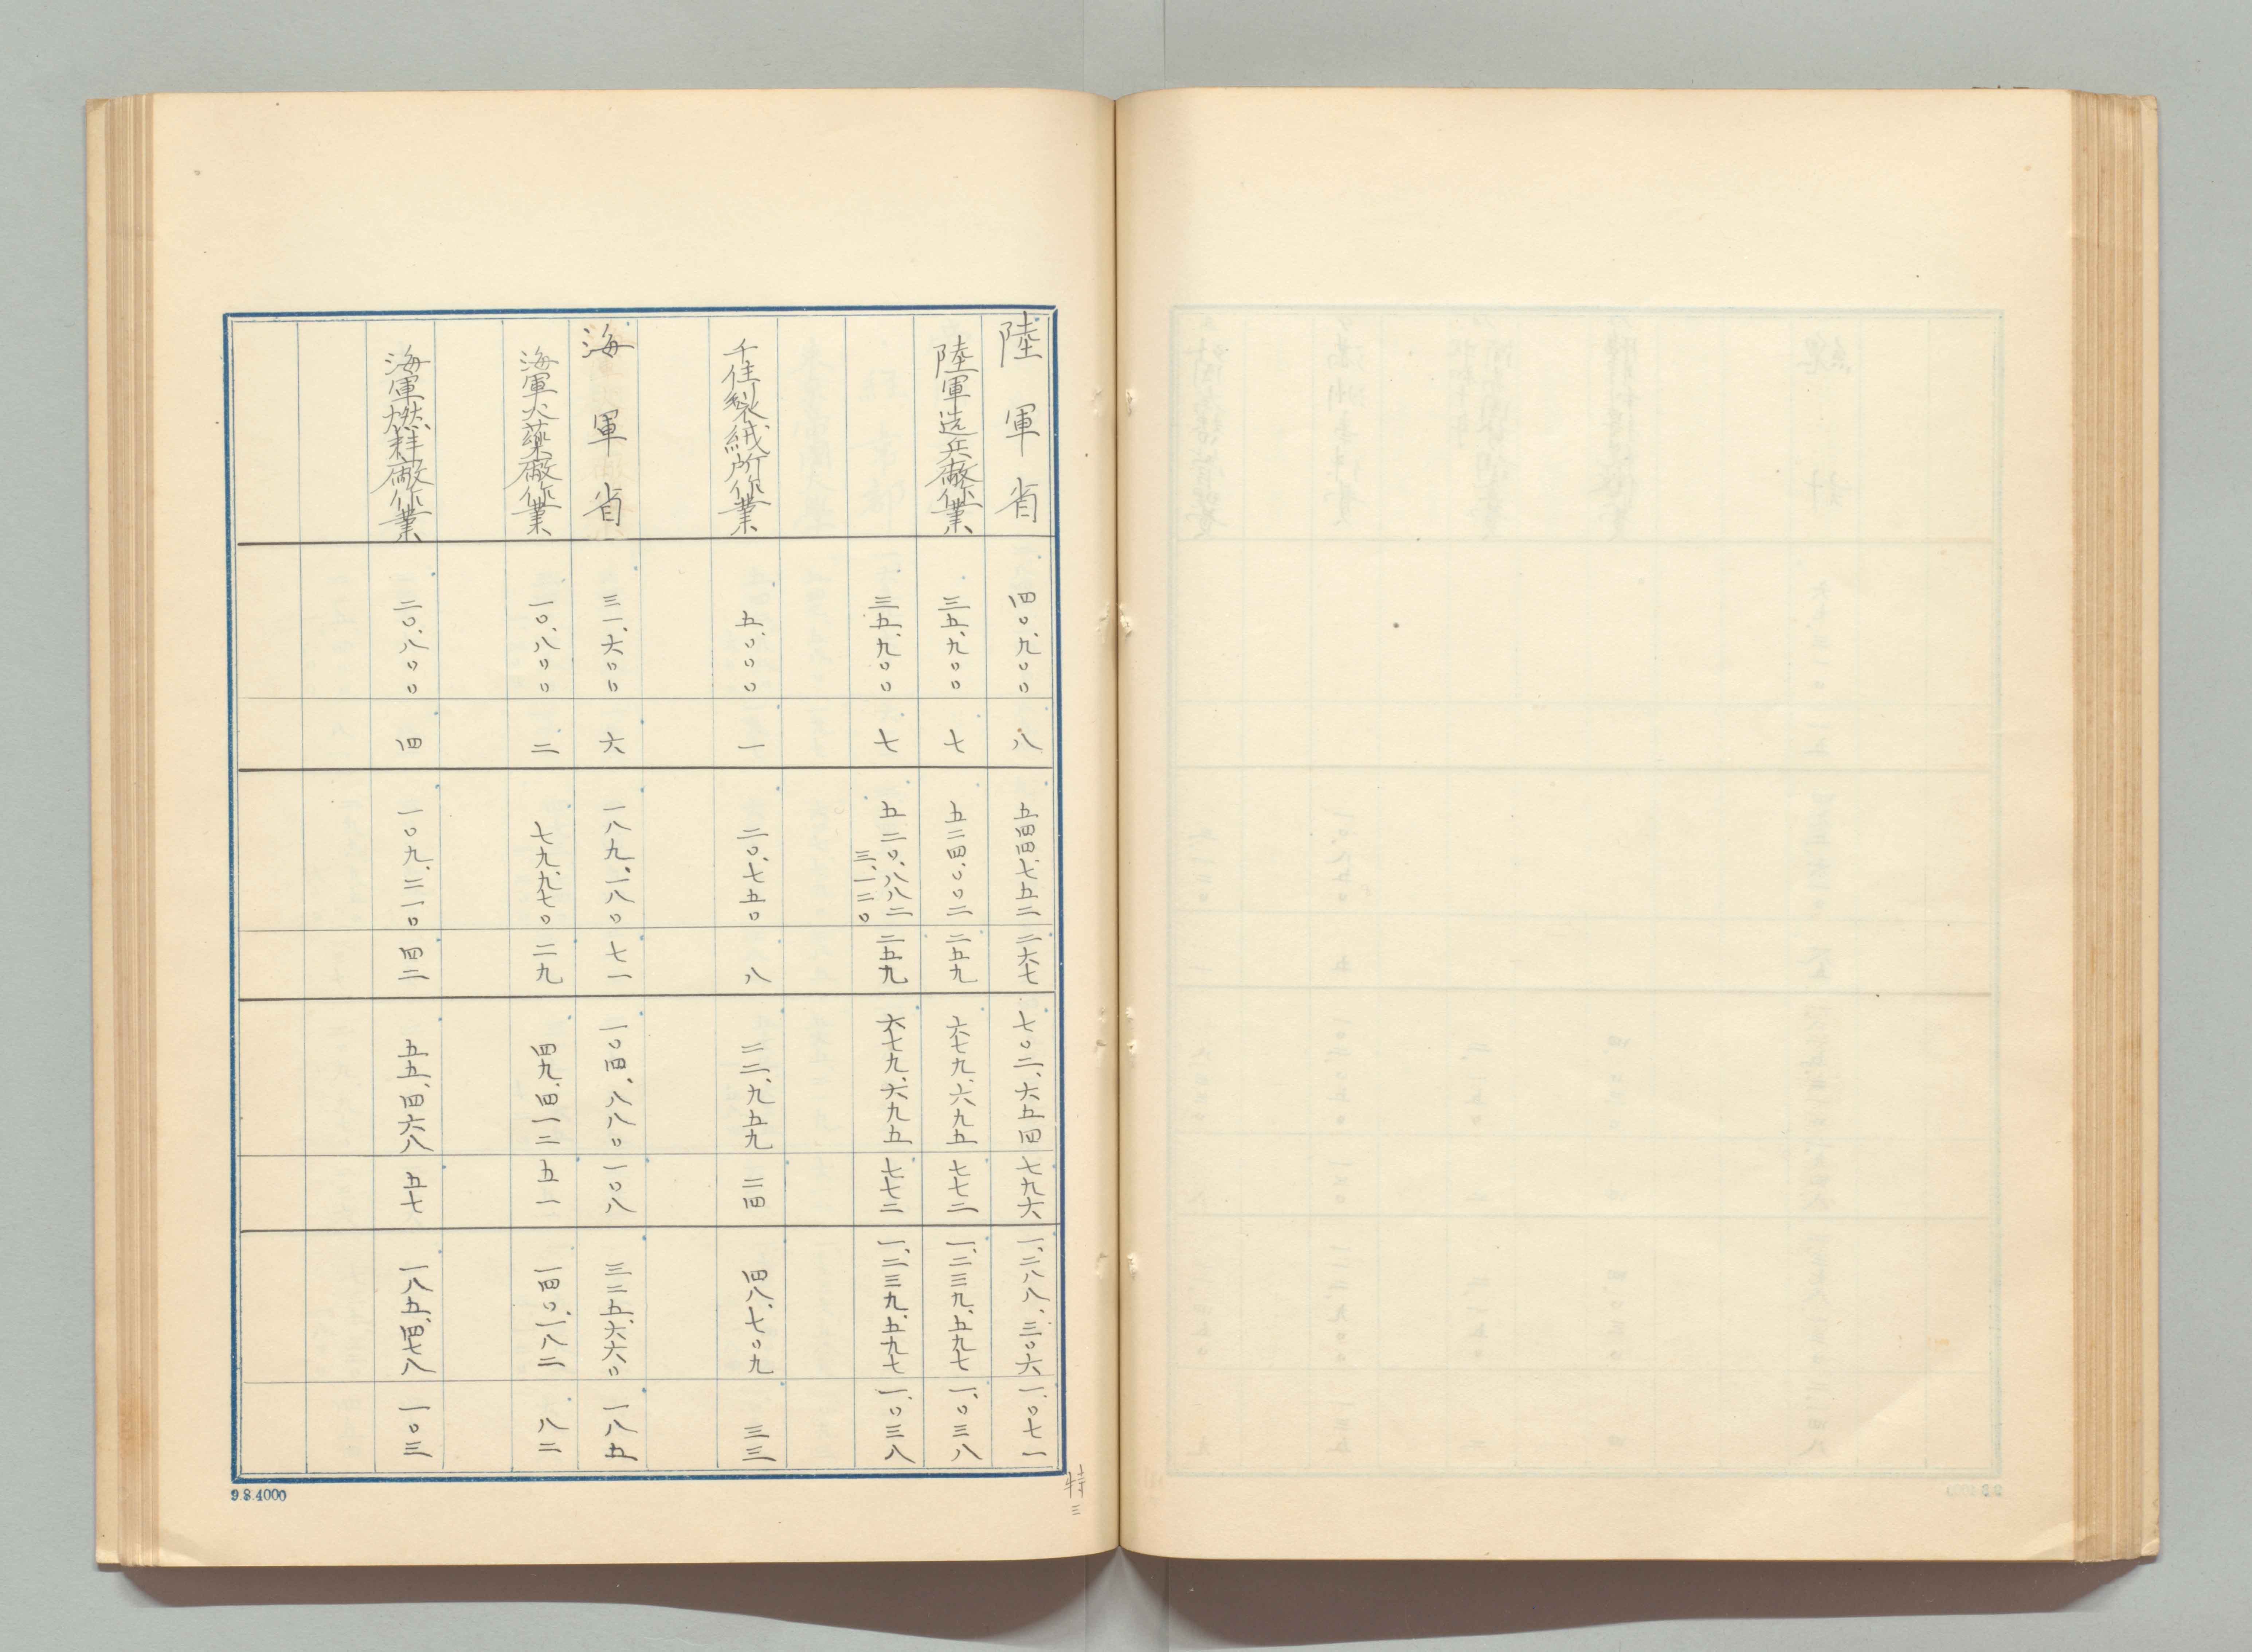 陸軍省 四〇、九〇〇 八 五四四、七五二 二六七 七〇二、六五四 七九六 一、二八八、三〇六 一、〇七一
陸軍造兵廠作業 三五、九〇〇 七 五二四、〇〇二 二五九 六七九、六九五 七七二 一、二三九、五九七 一、〇三八
三五、九〇〇 七 五二〇、八八二 二五九 六七九、六九五 七七二 一、二三九、五九七 一、〇三八
三、一二〇
千住製絨所作業 五、〇〇〇 一 二〇、七五〇 八 二二、九五九 二四 四八、七〇九 三三
海軍省 三一、六〇〇 六 一八九、一八〇 七一 一〇四、八八〇 一〇八 三二五、六六〇 一八五
海軍火藥廠作業 一〇、八〇〇 二 七九、九七〇 二九 四九、四一二 五一 一四〇、一八二 八二
海軍燃料廠作業 二〇、八〇〇 四 一〇九、二一〇 四二 五五、四六八 五七 一八五、四七八 一〇三
特三
9.8.4000